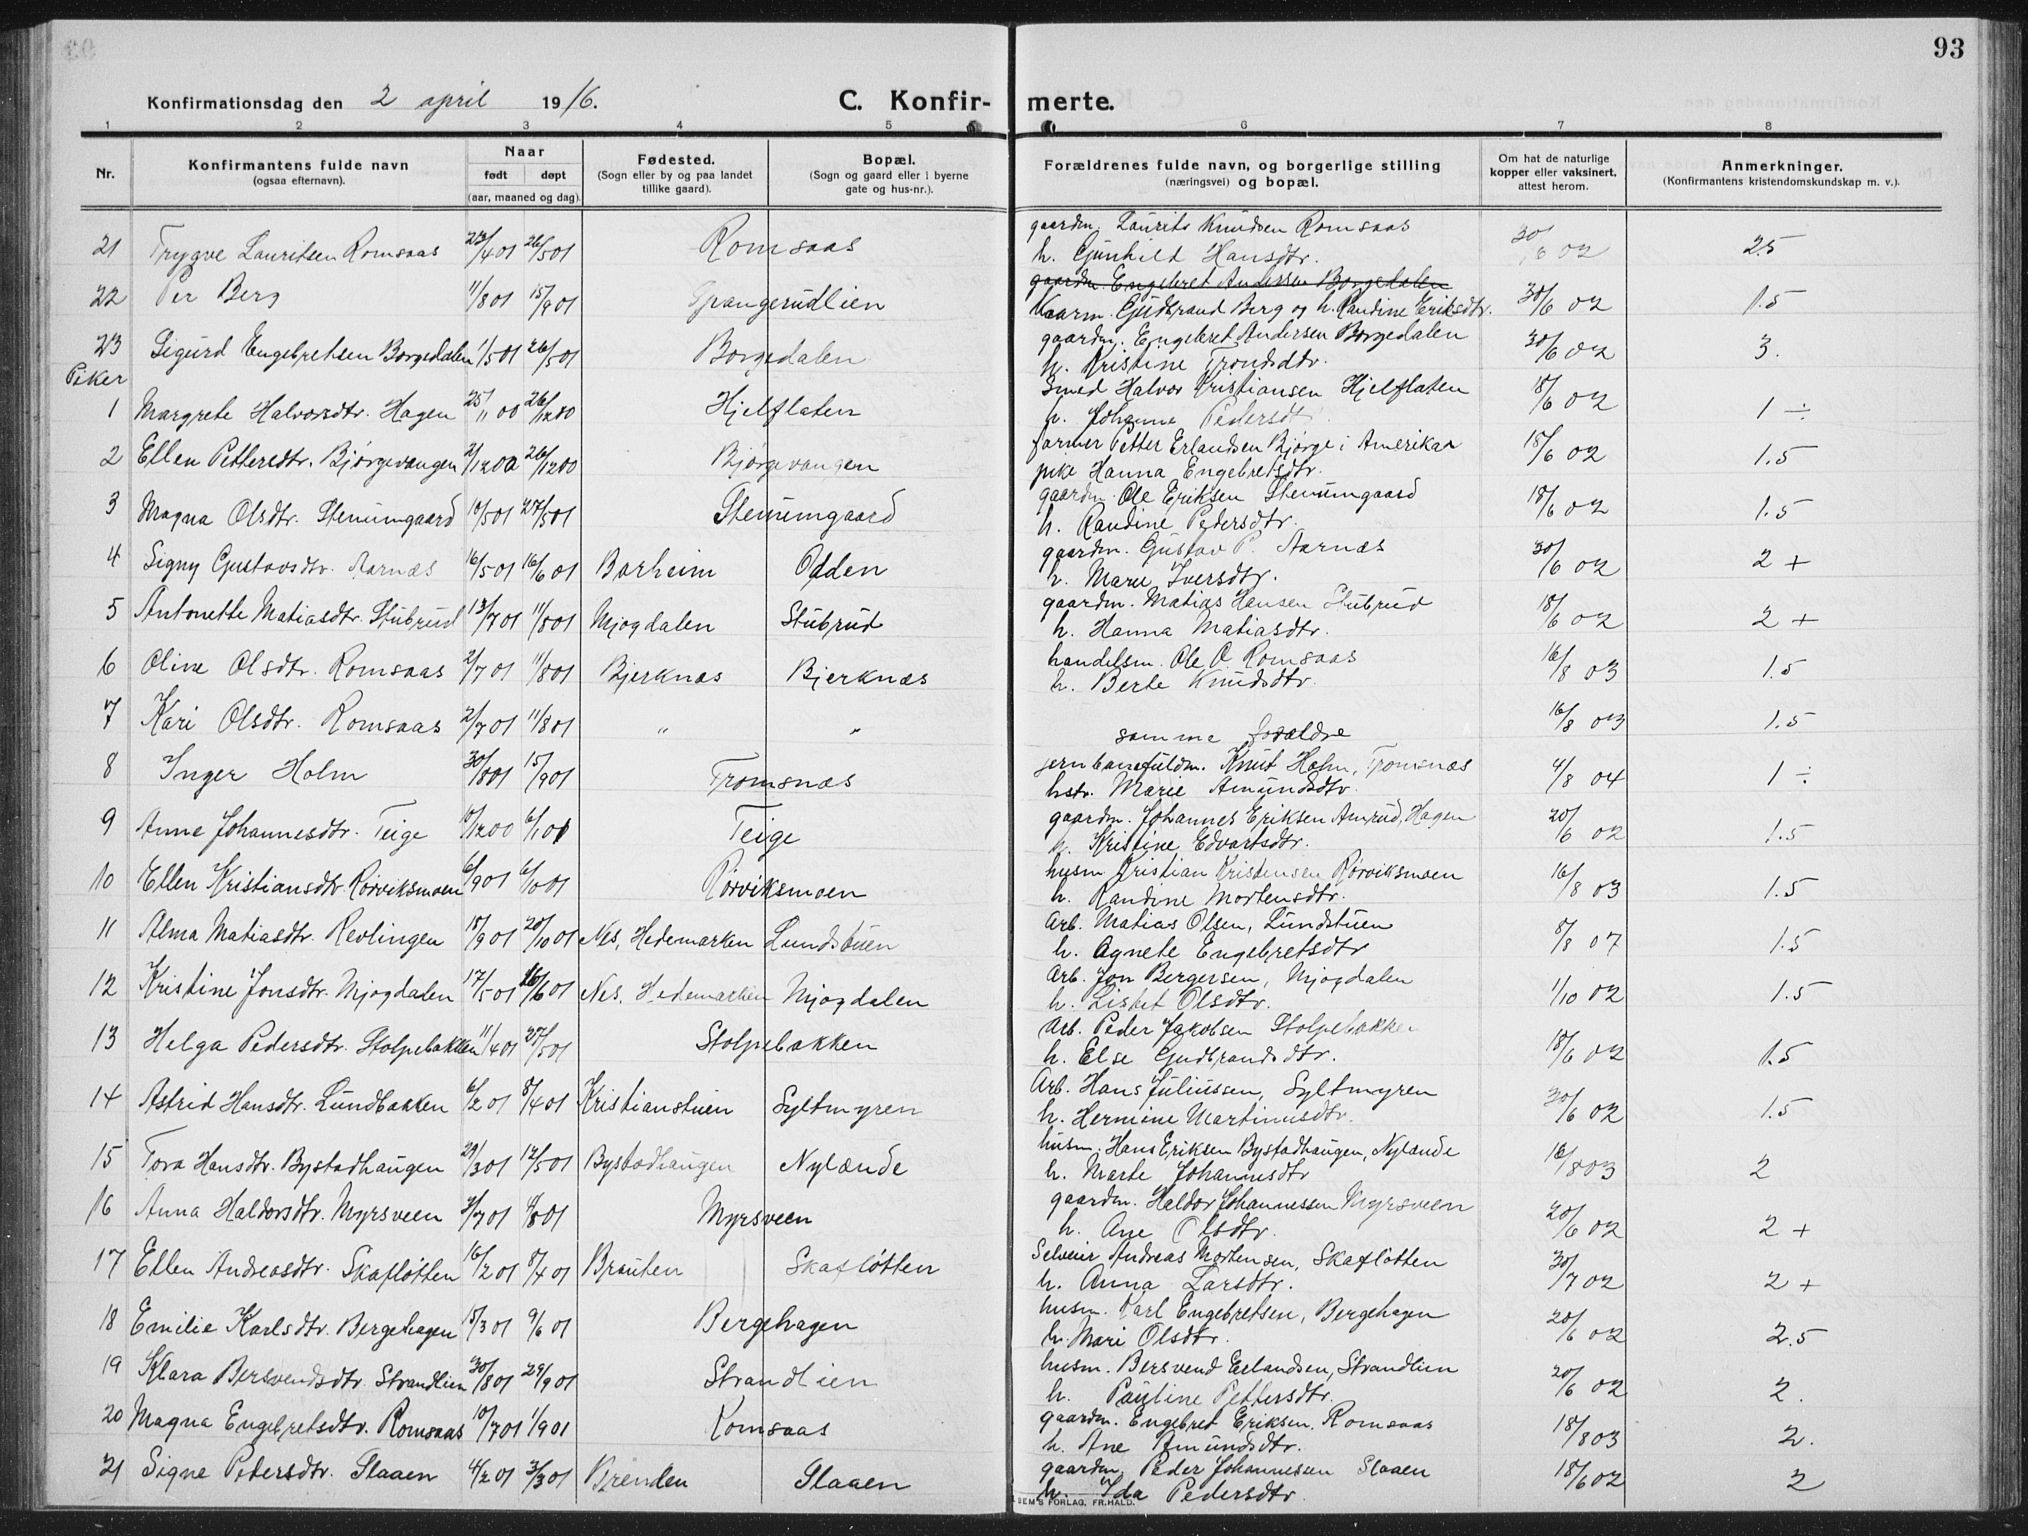 93
Konfirmationsdag den 2 april 1916.
C. Konfir- merte.
1 2 3 4 5 6 7 8
Nr.
Konfirmantens fulde navn
(ogsaa efternavn).
Naar
født døpt
(aar, maaned og dag).
Fødested.
(Sogn eller by og paa landet
tillike gaard).
Bopæl.
(Sogn og gaard eller i byerne
gate og hus-nr.).
Forældrenes fulde navn, og borgerlige stilling
(næringsvei) og bopæl.
Om hat de naturlige
kopper eller vaksinert,
attest herom.
Anmerkninger.
(Konfirmantens kristendomskundskap m. v.).
gaardm. Laurits Knudsen Romsaas
21 Trygve Lauritsen Romsaas 23/4 01 26/5 01 Romsaas 30/6 02 2.5
h. Gunhild Hansdtr.
gaardm. Engebret Andersen Borgedalen
22 Per Berg 11/8 01 15/9 01 Sprangerudlien 30/6 02 1.5
Vaarm. Gudbrand Berg og h. Randine Eriksdtr.
gaardm. Engebret Andersen Borgedalen
23 Sigurd Engebretsen Borgedalen 1/5 01 26/5 01 Borgedalen 30/6 02 3.
h. Kristine Trondsdtr.
Piker
Smed Halvor Kristiansen Hjelflaten
1 Margrete Halvorsdtr. Hagen 25/11 00 26/12 00 Hjelflaten 18/6 02 1 ÷
h. Johanne Pedersdtr.
farmer Petter Erlandsen Bjørge i Amerika
2 Ellen Pettersdtr. Bjørgevangen 2/12 00 26/12 00 Bjørgevangen 18/6 02 1.5
pike Hanna Engebretsdtr.
gaardm. Ole Eriksen Stenumgaard
3 Magna Olsdtr. Stenumgaard 10/5 01 27/5 01 Stenumgaard 18/6 02 1.5
h. Randine Pedersdtr.
gaardm. Gustav P. Aarnæs
4 Signy Gustavsdtr. Aarnæs 16/5 01 16/6 01 Barheim Odden 30/6 02 2 +
h. Marie Iversdtr.
gaardm. Matias Hansen Stubrud
5 Antonette Matiasdtr. Stubrud 13/7 01 11/8 01 Mjogdalen Stubrud 18/6 02 2 +
h. Hanna Matiasdtr.
handelsm. Ole O. Romsaas
6 Oline Olsdtr. Romsaas 2/7 01 11/8 01 Bjerknæs Bjerknæs 16/8 03 1.5
h. Berte Knudsdtr.
7 Kari Olsdtr. Romsaas 2/7 01 11/8 01 " " 16/8 03 1.5
samme forældre
jernbanefuldm. Knut Holm, Tromsnæs
8 Inger Holm 30/8 01 15/9 01 Tromsnæs 4/8 04 1 ÷
hstr. Marie Amundsdtr.
gaardm. Johannes Eriksen Amrud, Hagen
9 Anne Johannesdtr. Teige 10/12 00 6/1 01 Teige 20/6 02 1.5
h. Kristine Edvartsdtr.
husm Kristian Kristensen Rørviksmoen
10 Ellen Kristiansdtr. Rørviksmoen 6/9 01 6/10 01 Rørviksmoen 16/8 03 1.5
h. Randine Mortensdtr.
Arb. Matias Olsen, Lundstuen
11 Alma Matiasdtr. Revlingen 18/9 01 20/10 01 Nes, Hedemarken Lundstuen 8/8 07 1.5
h. Agnete Engebretsdtr
Arb. Jon Bergersen, Mjogdalen
12 Kristine Jonsdtr. Mjogdalen 17/5 01 16/6 01 Nes, Hedemarken Mjogdalen 1/10 02 1.5
h. Lisbet Olsdtr.
Arb. Peder Jakobsen Stolpebakken
13 Helga Pedersdtr. Stolpebakken 11/4 01 27/5 01 Stolpebakken 18/6 02 1.5
h. Else Gudbrandsdtr.
Arb. Hans Juliussen, Syltmyren
14 Astrid Hansdtr. Lundbakken 6/2 01 8/4 01 Kristianstuen Syltmyren 30/6 02 1.5
h. Hermine Martinusdtr.
husm. Hans Eriksen Bystadhaugen, Nylænde
15 Tora Hansdtr. Bystadhaugen 29/3 01 12/5 01 Bystadhaugen Nylænde 16/8 03 2
h. Marte Johannesdtr
gaardm. Haldor Johannessen Myrsveen
16 Anna Haldorsdtr. Myrsveen 2/7 01 4/8 01 Myrsveen 20/6 02 2 +
h. Ane Olsdtr.
Selveier Andreas Mortensen, Skafløtten
17 Ellen Andreasdtr. Skafløtten 16/2 01 8/4 01 Brauten Skafløtten 30/7 02 2 +
h. Anna Larsdtr.
husm. Karl Engebretsen, Bergehagen
18 Emilie Karlsdtr. Bergehagen 15/3 01 9/6 01 Bergehagen 20/6 02 2.5
h. Mari Olsdtr.
husm. Bersvend Erlandsen, Strandlien
19 Klara Bersvendsdtr. Strandlien 30/8 01 29/9 01 Strandlien 20/6 02 2.
h. Pauline Pettersdtr.
gaardm. Engebret Eriksen Romsaas
20 Magna Engebretsdtr. Romsaas 10/7 01 1/9 01 Romsaas 18/8 03 2.
h. Ane Amundsdtr.
gaardm. Peder Johannessen Slaaen
21 Signe Pedersdtr. Slaaen 4/2 01 3/3 01 Brenden Slaaen 18/6 02 2
h. Ida Pedersdtr.
SEM'S FORLAG, FR.HALD.